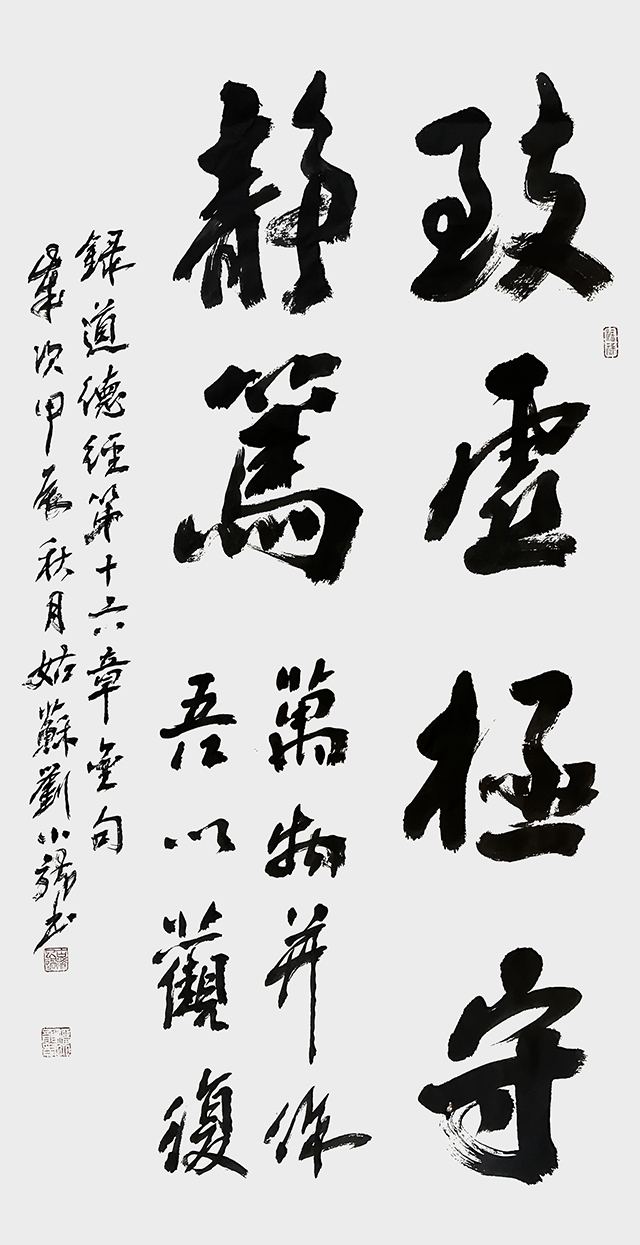 致虚極守
静篤
萬物并作
吾以觀復
録道德經第十六章金句
歲次甲辰秋月姑蘇劉小
書